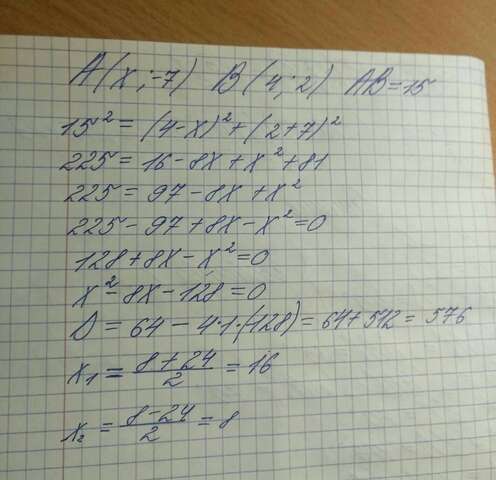 A(x;-7) B(4;2) AB=15
15² = (4-x)²+(2+7)²
225 = 16-8x+x²+81
225 = 97-8x+x²
225-97+8x-x²=0
128+8x-x²=0
x²-8x-128=0
D = 64-4·1·(-128)=64+512=576
x₁ = (8+24)/2 = 16
x₂ = (8-24)/2 = 8